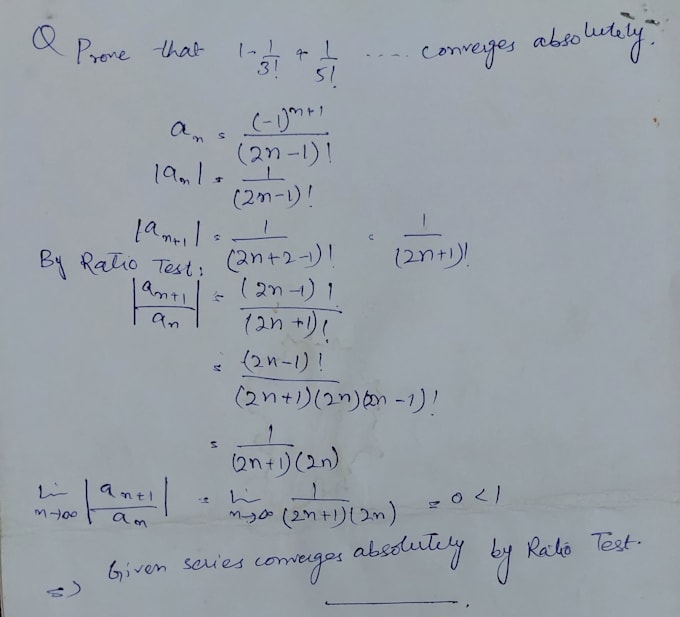 Q Prove that 1 - 1/3! + 1/5! .... converges absolutely.
a_n = (-1)^{n+1} / (2n-1)!
|a_n| = 1 / (2n-1)!
|a_{n+1}| = 1 / (2n+2-1)! = 1 / (2n+1)!
By Ratio Test:
|a_{n+1} / a_n| = (2n-1)! / (2n+1)!
= (2n-1)! / (2n+1)(2n)(2n-1)!
= 1 / (2n+1)(2n)
lim_{n→∞} |a_{n+1} / a_n| = lim_{n→∞} 1 / (2n+1)(2n) = 0 < 1
=> Given series converges absolutely by Ratio Test.